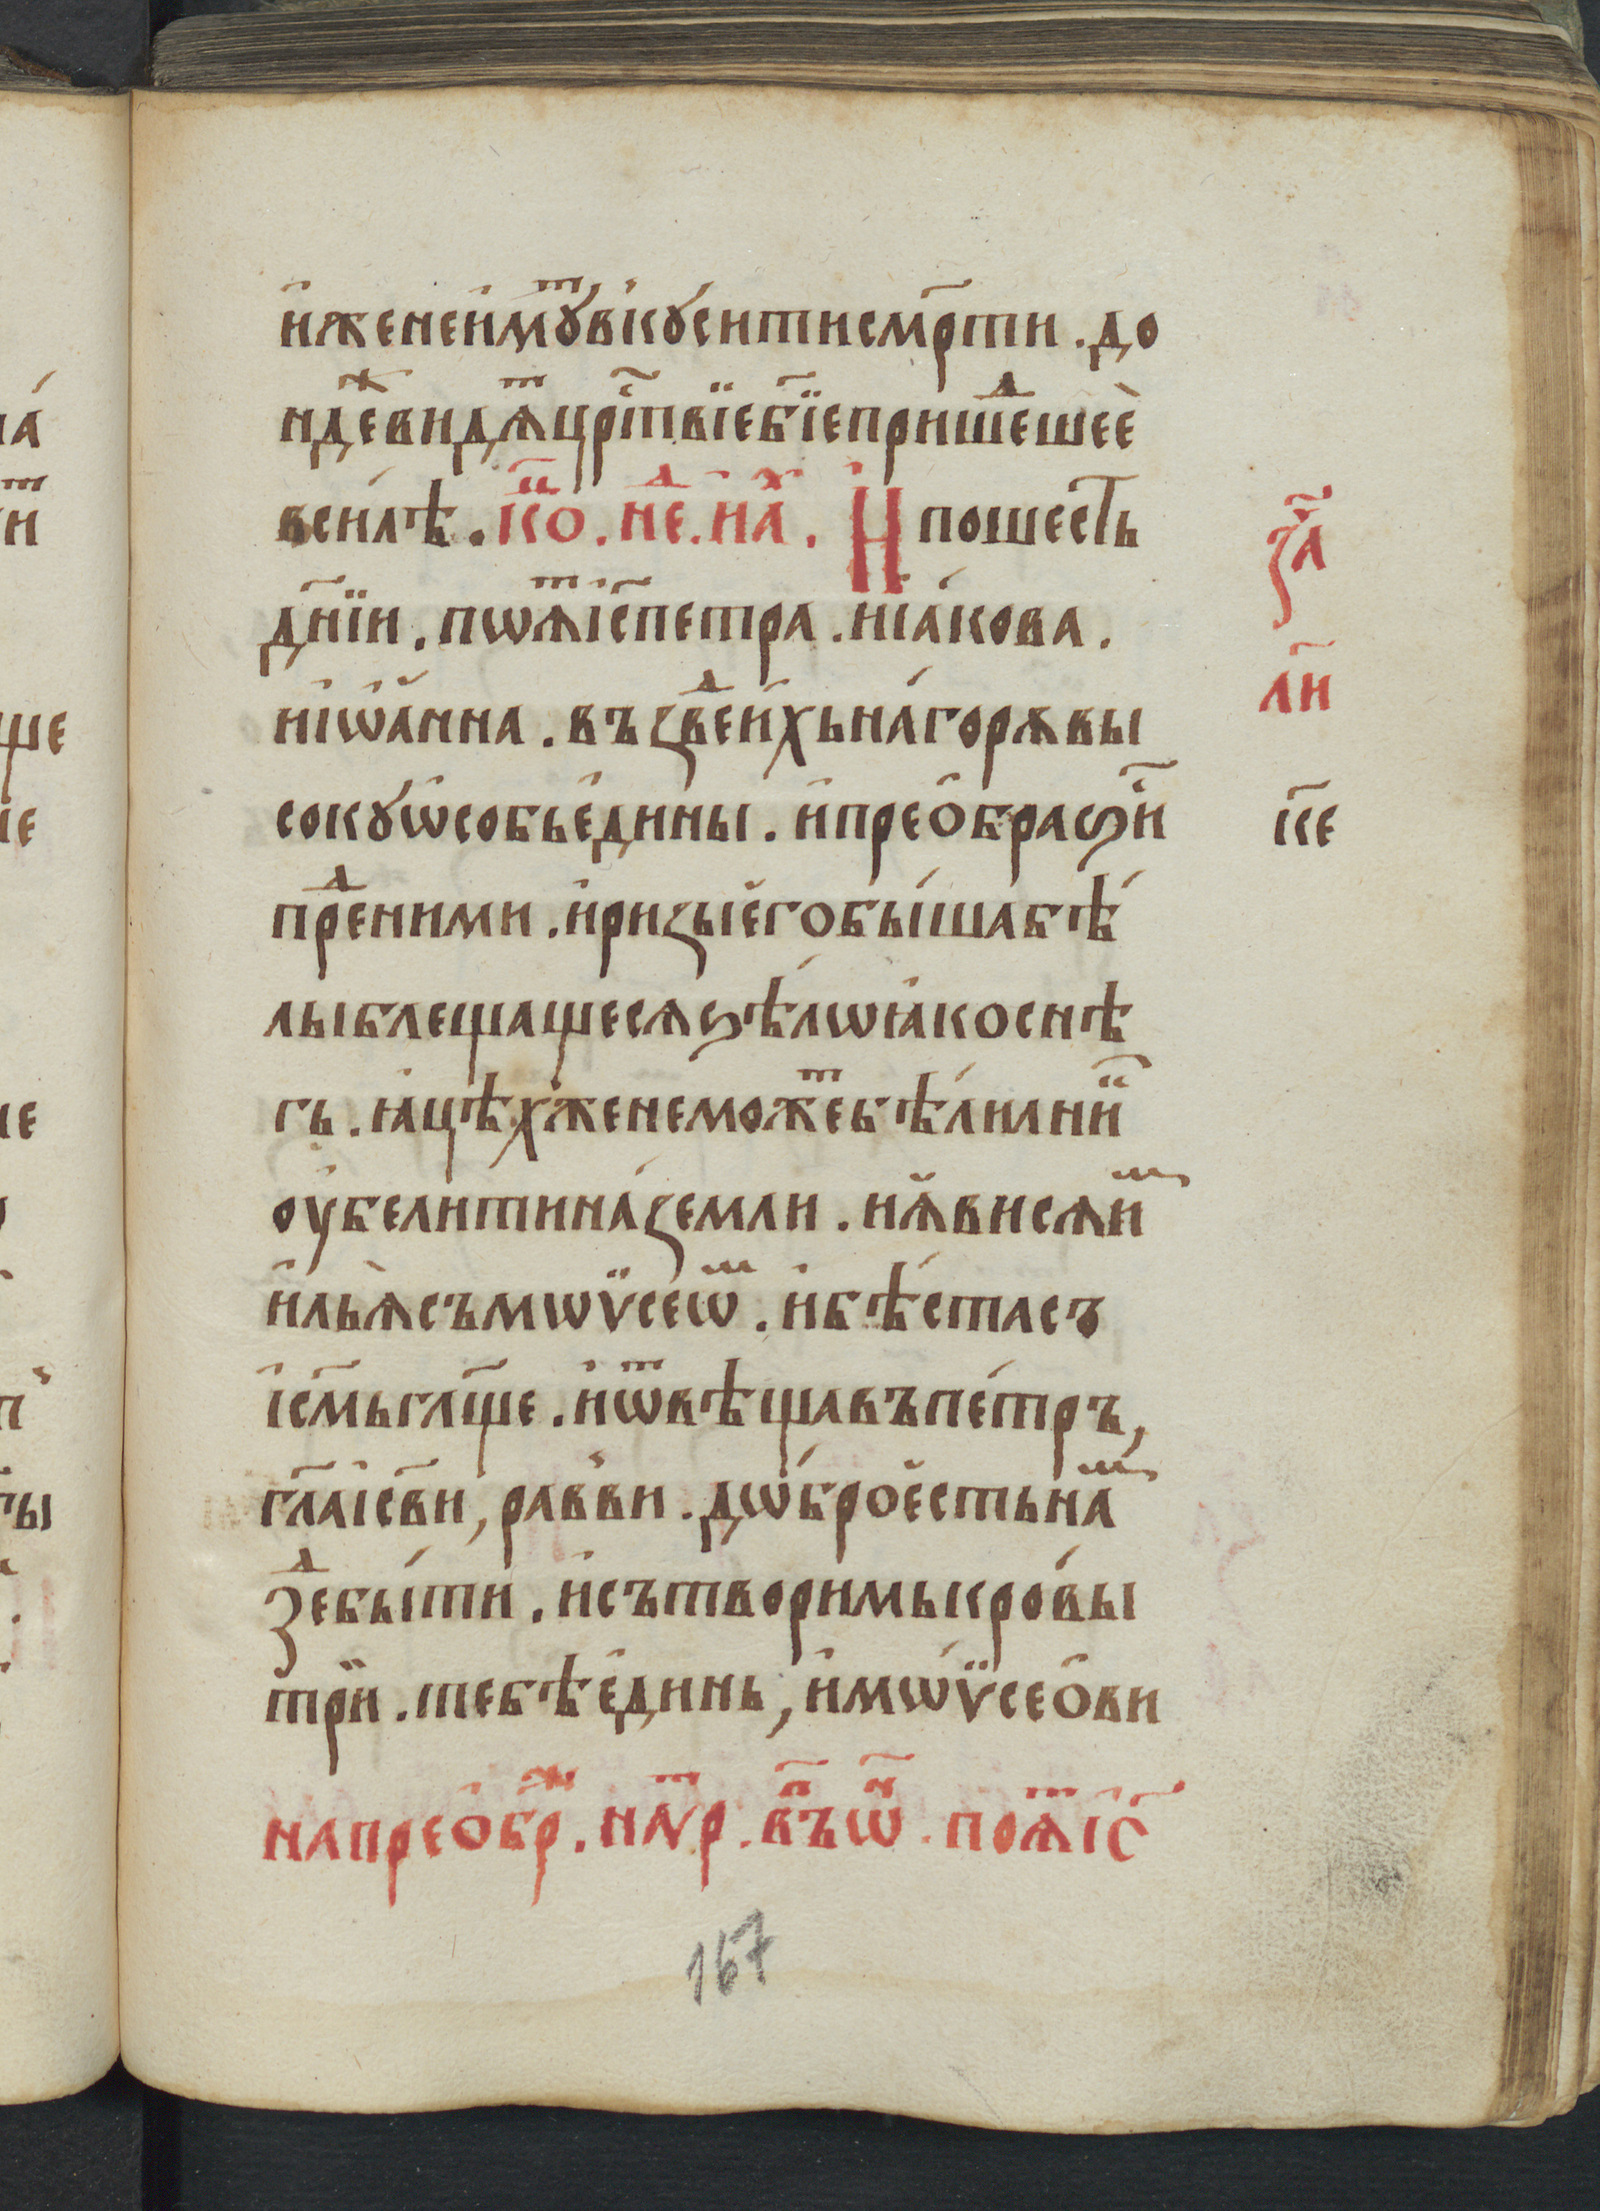 и҆́женеи҆́мꙋⷮвкꙋ́ситисмр҃ти . до
ндеⷤвидѧⷮцрⷭ҇твїебж҃їепришеⷣшеѐ
всилѣ . кѡ҃ . неⷣ . и҆л҃ . И҆пошесть
дн҃їи . пѡѧⷮі҆с҃петра . ииа́кова .
нїѡа́нна . възвеⷣи́хьна́горѧвы
сокꙋ́ѡ҆собье҆дины . и҆прео҆бразиⷭ҇
преⷣними . и҆ризые҆гобы́шабѣ́
лыблещащесѧѕѣ́лѡꙗ҆коснѣ
гъ . ꙗ҆цѣ́хженеможеⷮбѣли́лниⷦ҇
ѹ҆белитина́земли . иꙗ҆висѧиⷨ
и҆льѧ̀съмѡѵ̈сеѡⷨ . и҆бѣ́стасъ
і҆сⷭ҇мьгл҃ще . и҆ѿвѣщавъпе́тръ,
гл҃аі҆с҃ви, равви . дѡ́брое҆стьнаⷨ
зⷣебы́ти . и҆сътворимькро́вы
три . тебѣ́е҆динь, и҆мѡѵ̈сео҆ви
напрео҆брⷤ . наⷮѵр . в҃ъѡⷩ҇ . поѧⷮі҆с҃
за҃
ли҃
к҃е
167